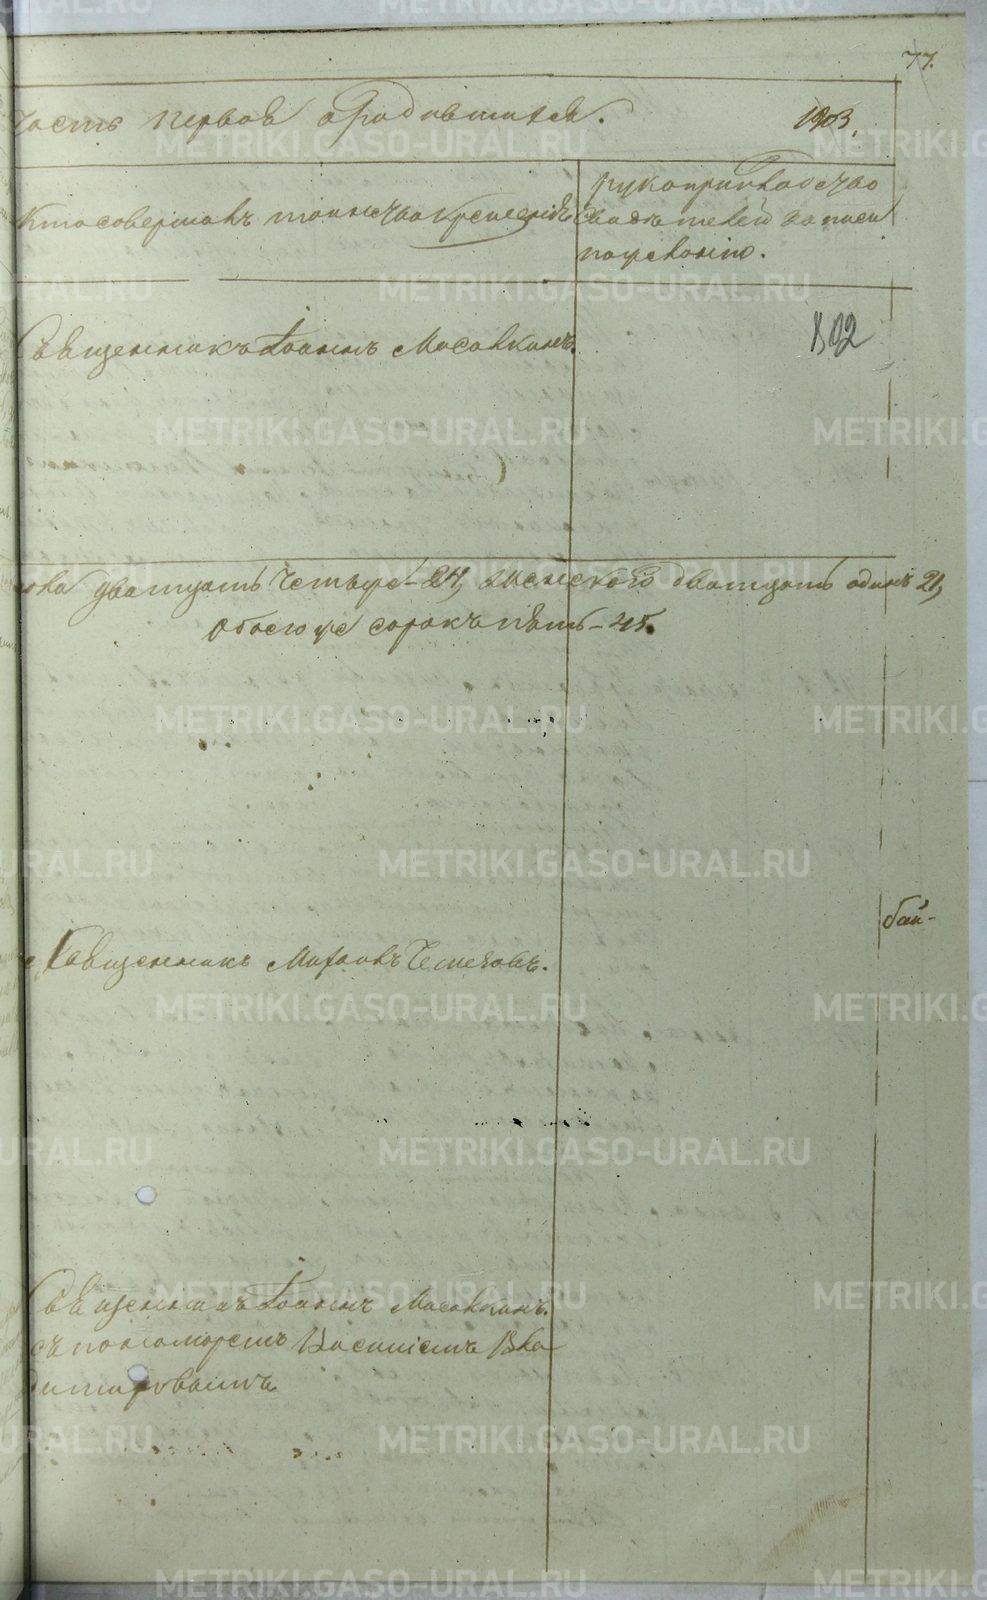 77.
Часть первая о родившихся. 1903.
Кто совершалъ таинство крещенія
рукоприкладство
свидѣтелей записи
по желанію.
Священникъ Іоаннъ Масалкинъ.
802
двадцать четыре - 24, женского двадцать одинъ 21,
обоего же сорокъ пять - 45.
бай-
Священникъ Михаилъ
Священникъ Іоаннъ Масалкинъ
съ псаломщ Василіемъ Вла
диміровымъ
METRIKI.GASO-URAL.RU